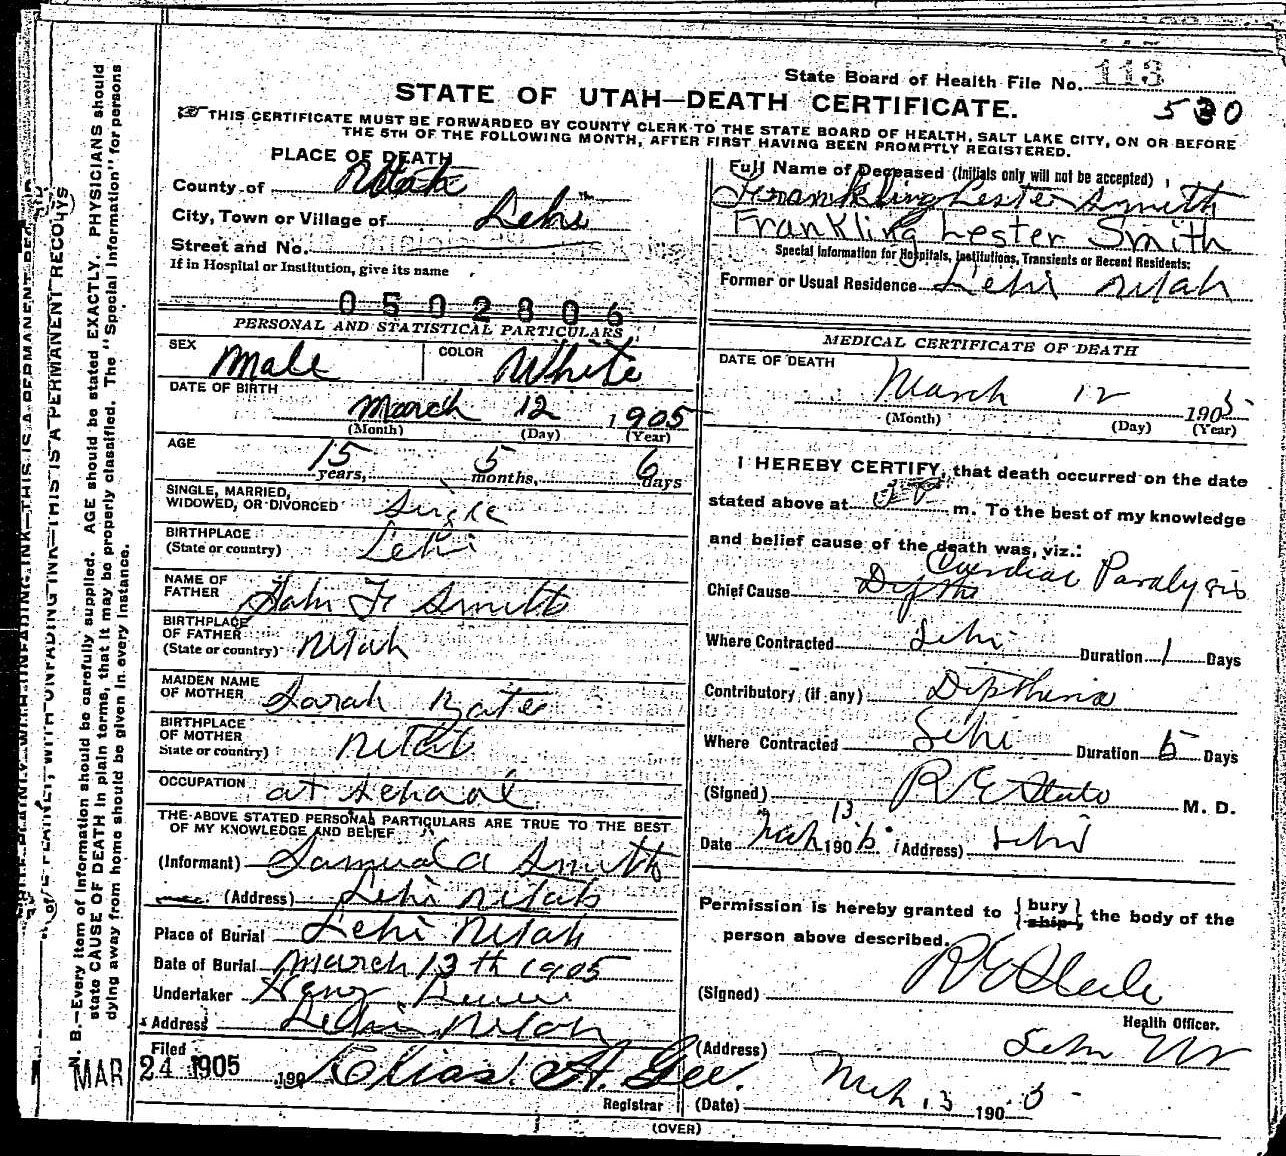 State Board of Health File No. 113
STATE OF UTAH—DEATH CERTIFICATE.
530
THIS CERTIFICATE MUST BE FORWARDED BY COUNTY CLERK TO THE STATE BOARD OF HEALTH, SALT LAKE CITY, ON OR BEFORE
THE 5TH OF THE FOLLOWING MONTH, AFTER FIRST HAVING BEEN PROMPTLY REGISTERED.
PLACE OF DEATH
County of Utah
City, Town or Village of Lehi
Street and No.
If in Hospital or Institution, give its name
0502806
Full Name of Deceased (Initials only will not be accepted)
Frankling Lester Smith
Frankling Lester Smith
Special Information for Hospitals, Institutions, Transients or Recent Residents:
Former or Usual Residence Lehi Utah
PERSONAL AND STATISTICAL PARTICULARS
SEX Male COLOR White
DATE OF BIRTH
March 12 1905
(Month) (Day) (Year)
AGE
15 years, 5 months, 6 days
SINGLE, MARRIED,
WIDOWED, OR DIVORCED Single
BIRTHPLACE
(State or country) Lehi
NAME OF
FATHER John F Smith
BIRTHPLACE
OF FATHER
(State or country) Utah
MAIDEN NAME
OF MOTHER Sarah
BIRTHPLACE
OF MOTHER
State or country) Utah
OCCUPATION at school
THE ABOVE STATED PERSONAL PARTICULARS ARE TRUE TO THE BEST
OF MY KNOWLEDGE AND BELIEF
(Informant) Samual A Smith
(Address) Lehi Utah
Place of Burial Lehi Utah
Date of Burial March 13th 1905
Undertaker
Address Lehi Utah
Filed
MAR 24 1905 190 Elias A. Gee.
Registrar
MEDICAL CERTIFICATE OF DEATH
DATE OF DEATH
March 12 1905
(Month) (Day) (Year)
I HEREBY CERTIFY, that death occurred on the date
stated above at m. To the best of my knowledge
and belief cause of the death was, viz.:
Chief Cause Cardiac Paralysis
Where Contracted Lehi Duration 1 Days
Contributory (if any) Diptheria
Where Contracted Lehi Duration 5 Days
(Signed) R E Steele M. D.
Date Mch 13 1905 (Address) Lehi
Permission is hereby granted to {bury ship} the body of the
person above described.
(Signed) R E Steele
Health Officer.
(Address) Lehi Ut
(Date) Mch 13 1905
(OVER)
N. B.—Every item of information should be carefully supplied. AGE should be stated EXACTLY. PHYSICIANS should
state CAUSE OF DEATH in plain terms, that it may be properly classified. The "Special Information" for persons
dying away from home should be given in every instance.